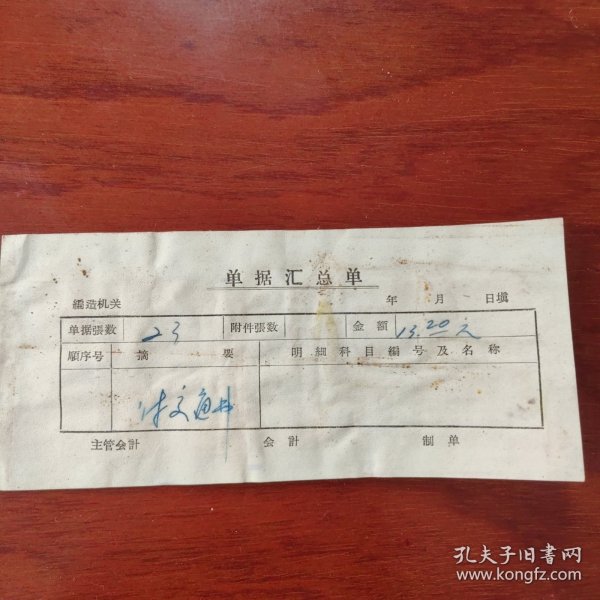 单据汇总单
编造机关 年 月 日填
单据張数 23 附件張数 金額 13.20元
順序号 摘要 明細科目編号及名称
主管会計 会計 制单
孔夫子旧书网
www.kongfz.com